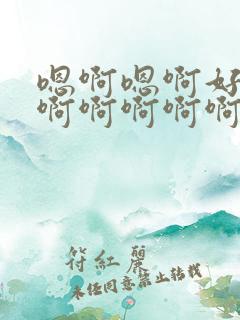 嗯啊嗯啊好
啊啊啊啊啊
符紅麗
未经同意禁止转载